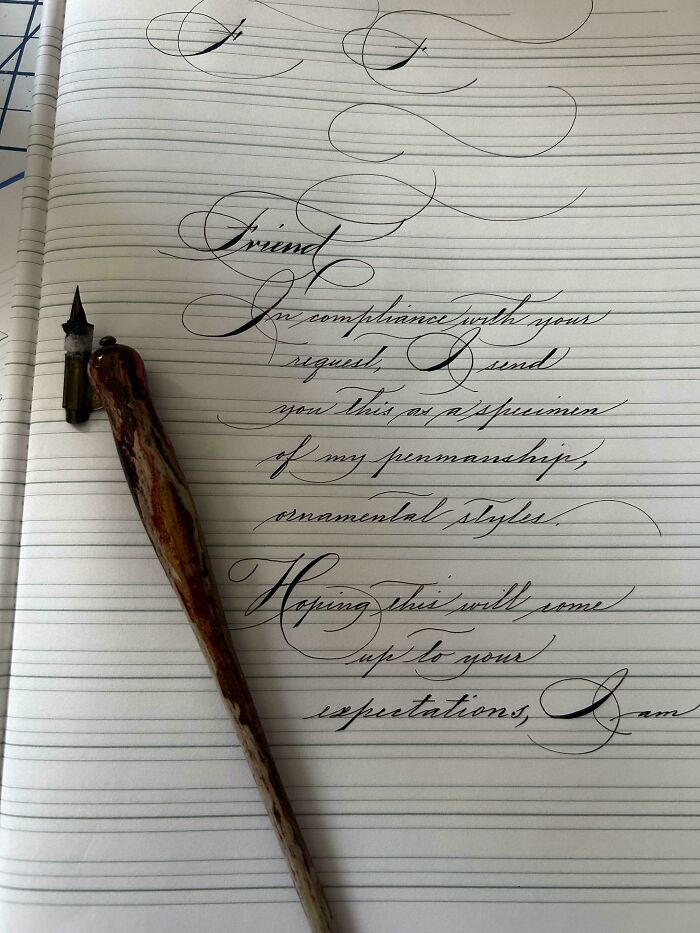 F F
Friend
In compliance with your
request, I send
you this as a specimen
of my penmanship,
ornamental styles.
Hoping this will come
up to your
expectations, I am